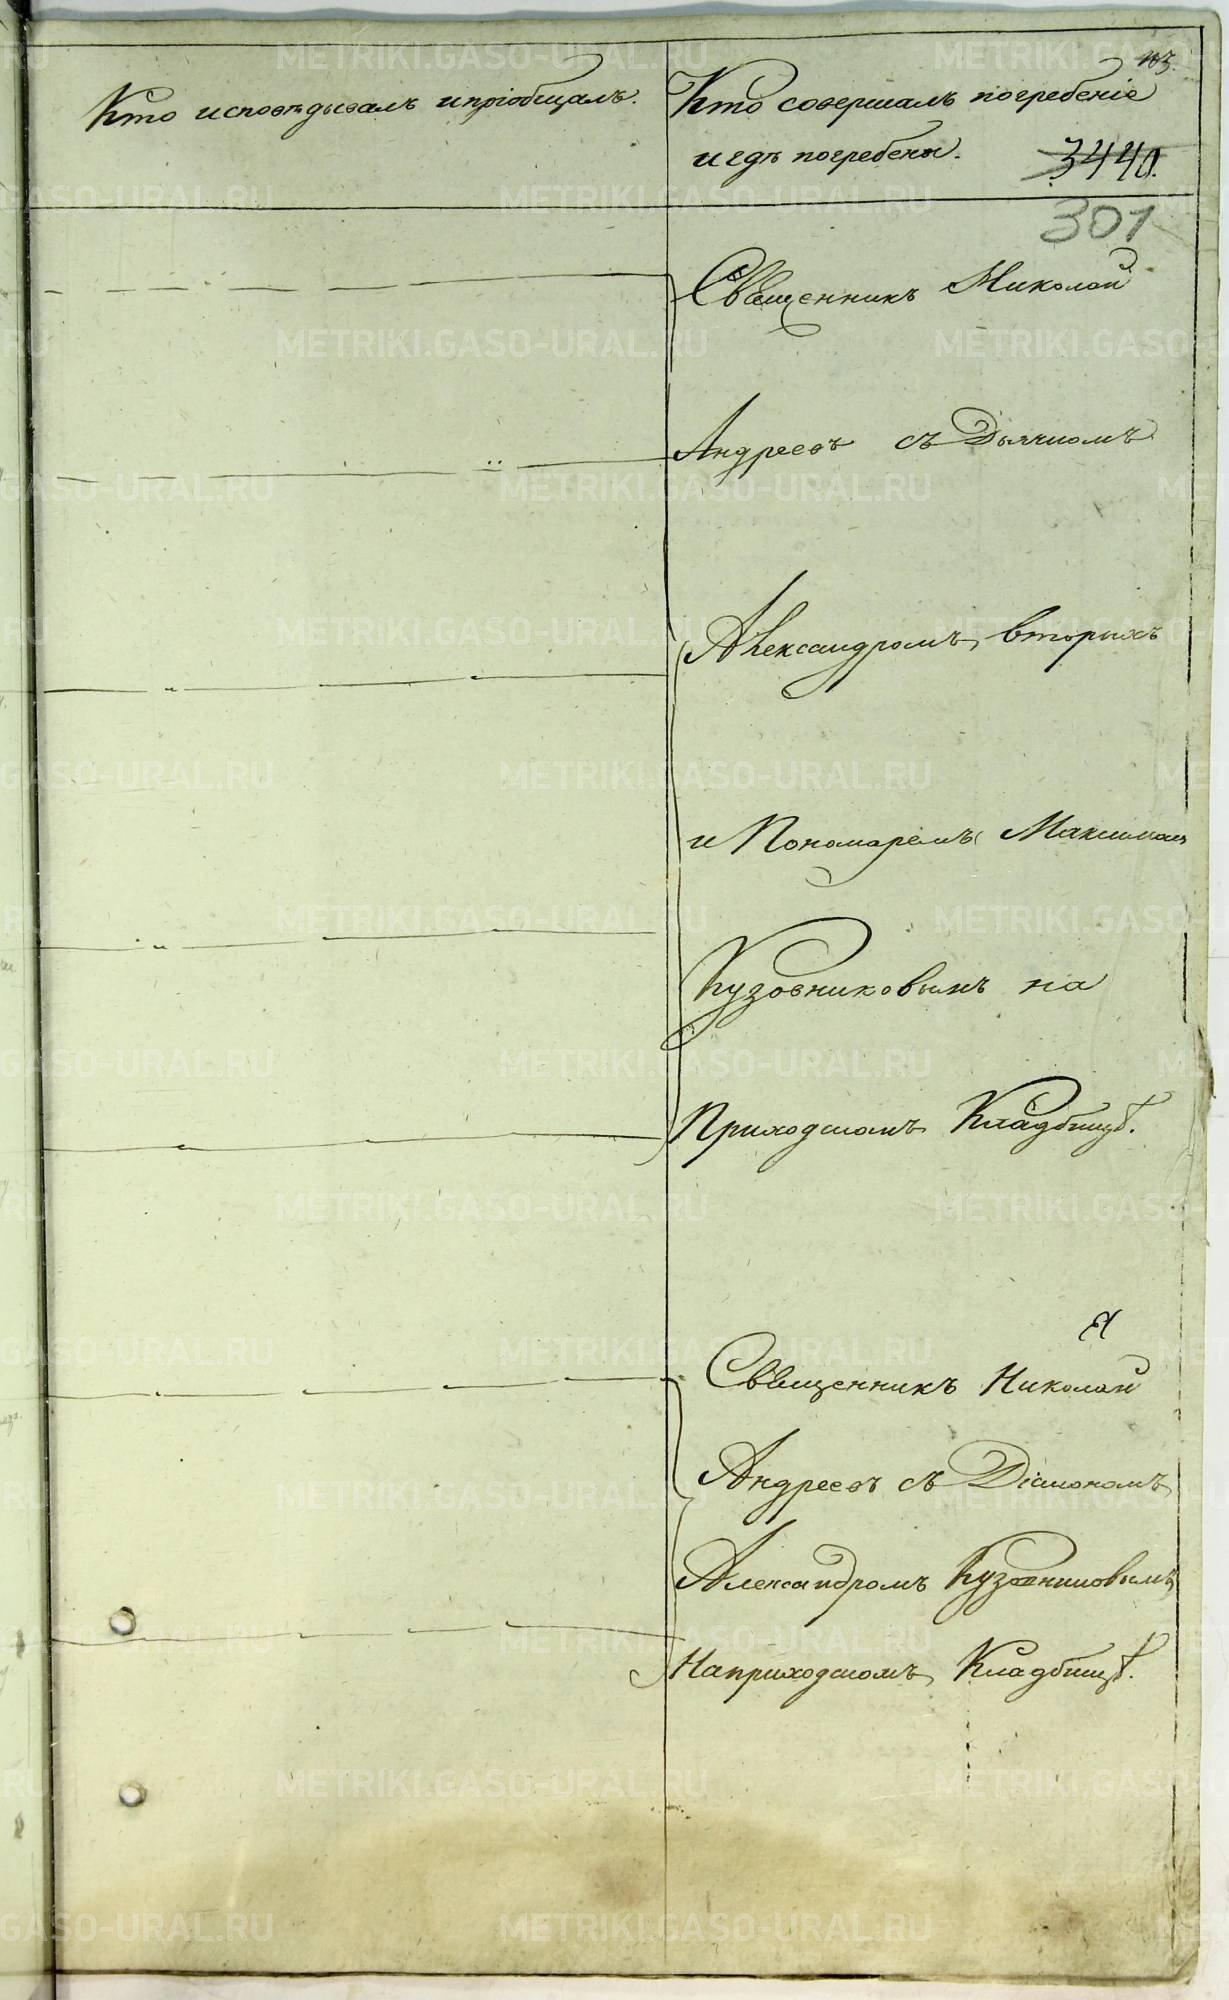 103.
Кто исповѣдывалъ и пріобщалъ.
Кто совершалъ погребеніе
и гдѣ погребены.
3440.
301
Священникъ Николай
Андреевъ съ Дьячкомъ
Александромъ вторымъ
и Пономаремъ Максимомъ
Кузовниковымъ на
Приходскомъ Кладбищѣ.
Священникъ Николай
Андреевъ съ Діакономъ
Александромъ Кузовниковымъ
На приходскомъ Кладбищѣ.
METRIKI.GASO-URAL.RU